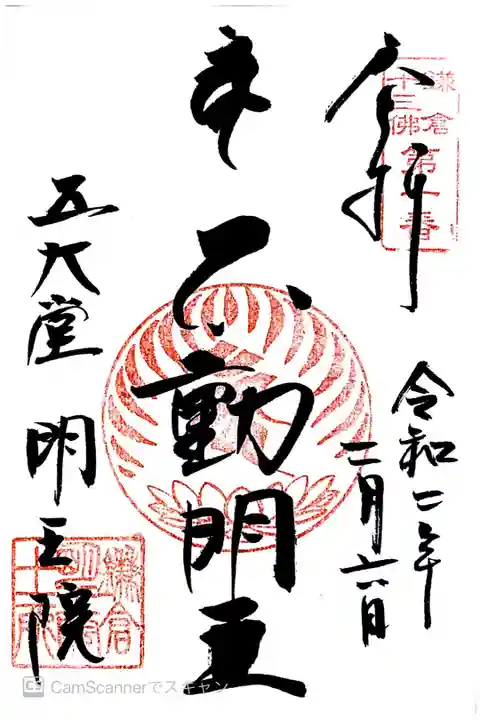 鎌倉
十三佛
第一番
奉拝
令和二年
二月六日
不動明王
五大堂 明王院
鎌倉
CamScannerでスキャン